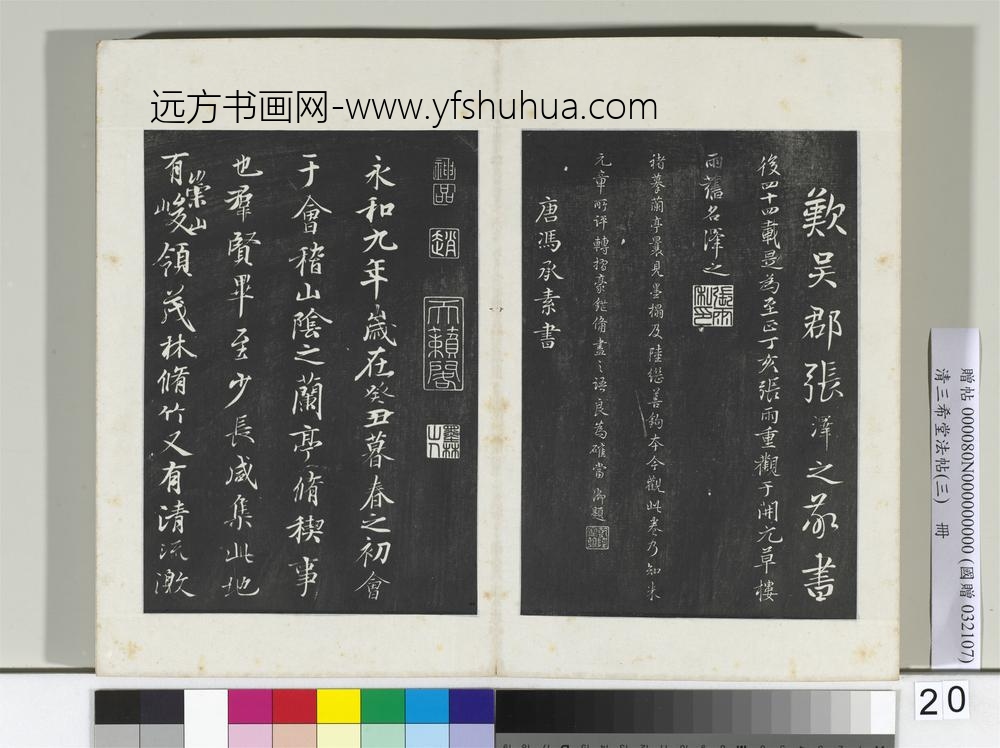 远方书画网-www.yfshuhua.com
歎吴郡張澤之敬書
後四十四載是為至正丁亥張雨重觀于開元草樓
雨舊名澤之
張雨私印
褚摹蘭亭曩見墨搨及陸繼善鉤本今觀此卷乃知米
元章所评轉摺豪鋩備盡之語良為確當 御題
唐馮承素書
神品
趙
天籟閣
墨林山人
永和九年歲在癸丑暮春之初會
于會稽山陰之蘭亭脩稧事
也羣賢畢至少長咸集此地
有崇山峻領茂林脩竹又有清流激
贈帖 000080N000000000 (國贈 032107)
清三希堂法帖(三) 冊
20